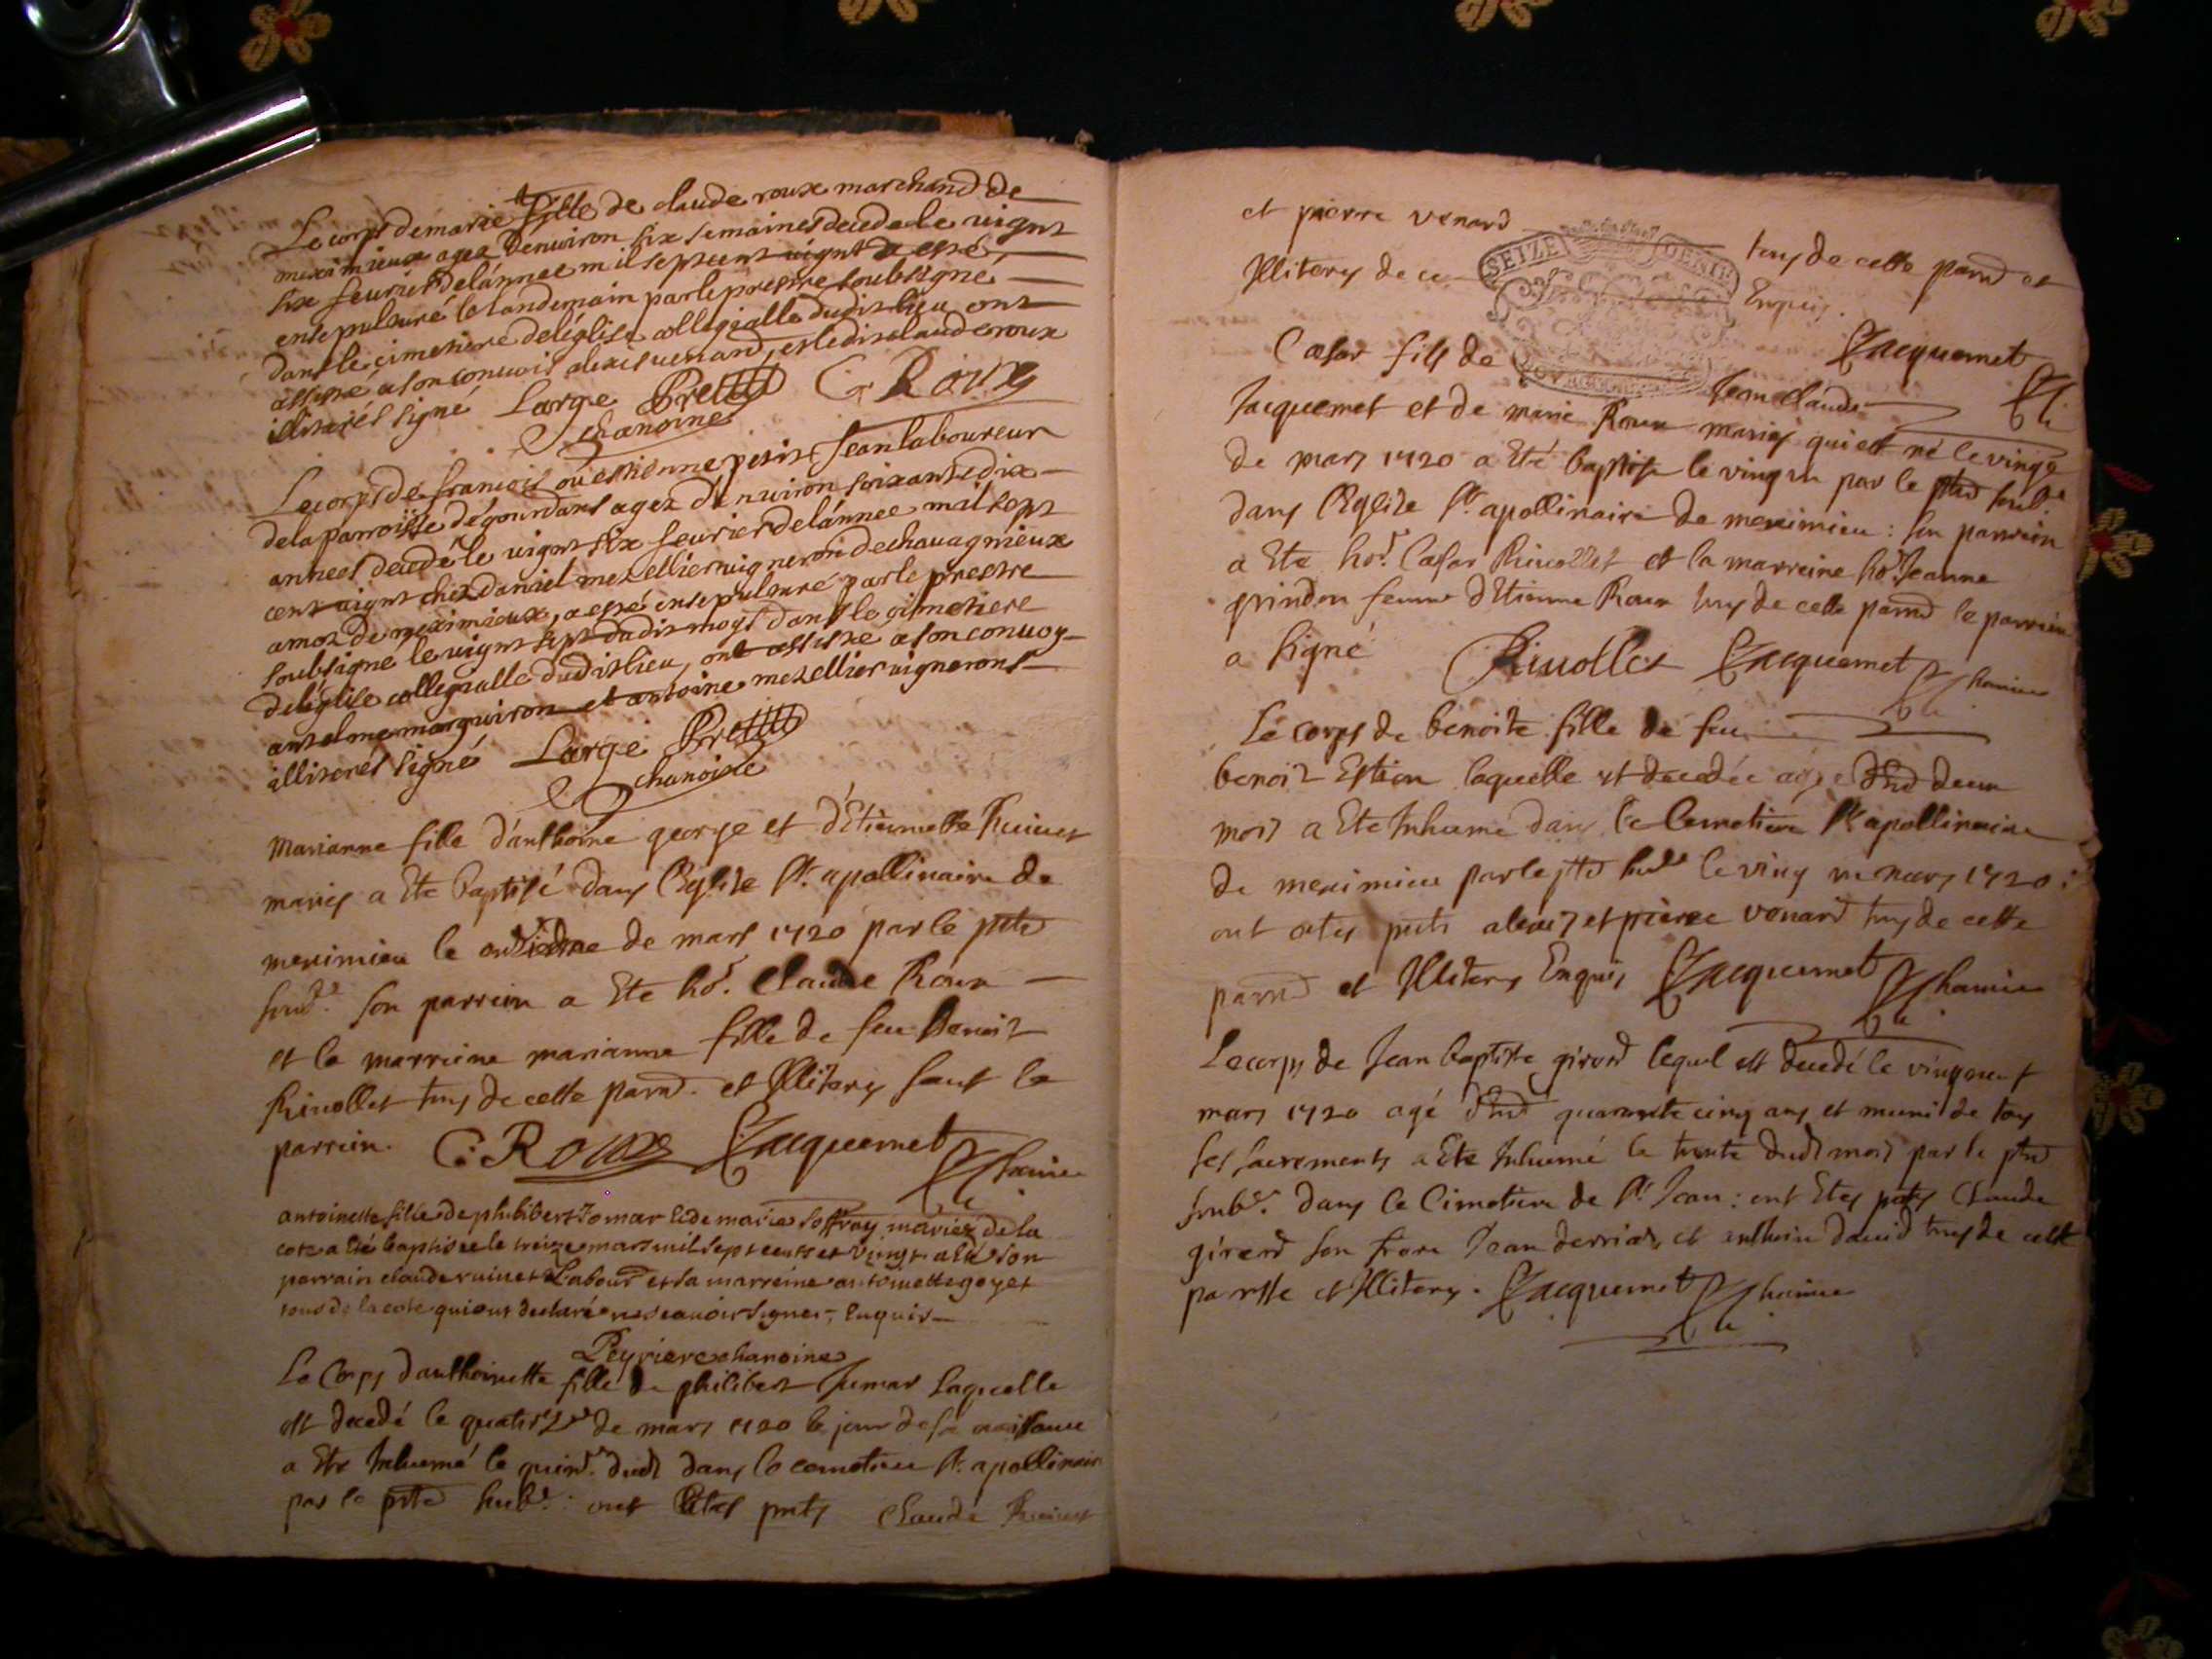 Le corps de marie fille de claude roux marchand de
meximieux agee denuiron six semaines decedee le vignt
six feurier de lánnee mil sept cent vignt a esté
ensepulturé le landemain par le prestre soubsigné
dans le cimetiere de léglise collegialle dudit lieu ont
assisté a son conuois alexis uenard, et ledit claude roux
illiterés signé Large Pre C. Roux
chanoine
Le corps de francois ou estienne petit Jean laboureur
de la parroisse de gourdans agez d'enuiron soixante dix
annees decedé le vignt six feurier de lánnee mil sept
cent vignt chez daniel mezellier uigneron de chauagnieux
amoz de meximieux, a esté ensepulturé par le prestre
soubsigné le uignt sept dudit moys dans le cimetiere
de léglise collegialle dudit lieu, ont assisté a son conuoy
antelme marguiron et antoine mezellier uignerons
illiterés signé Large Pre
chanoine
Marianne fille d'anthoine george et d'Etiennette Ruiuet
mariés a Ete baptisé dans l'Eglise St. apollinaire de
meximieu le onzieme de mars 1720 par le pttre
soub.é son parrein a Ete ho.r Claude Roux
et la marreine marianne fille de feu Benoit
Riuollet tous de cette parse. et Illiterés sauf le
parrein. C. Roux Jacquemet
channe
antoinette fille de philibert Jomar & de marie Joffray mariez de la
cote a été baptisée le treize mars mil sept cents et vingt a été son
parrain claude ruinet Labour et sa marreine antoinette goyet
tous de la cote qui ont declaré ne scauoir signer, enquis
Peyriere chanoine
Le Corps d'anthoinette fille de philibert Jumar Laquelle
est decedé le quatorze de mars 1720 le jour de sa naissance
a Ete Inhumé le quinz. dudt dans le cemetiere St. apollinaire
par le pttre soub.é : ont Etés pnts Claude Ruiuet
et pierre venard tous de cette parse et
Illiterés de ce Enquis.
SEIZE DENIE
Jacquemet
Cæsar fils de Jean Claude
Jacquemet et de marie Roux mariés qui est né le vingt
de mars 1720 a Eté baptisé le vingt un par le pttre soub.é
dans l'Eglise St. apollinaire de meximieu : son parrein
a Ete ho.r Cæsar Riuollet et la marreine ho. Jeanne
grindon femme d'Etienne Roux tous de cette parse le parrein
a signé Riuollet Jacquemet
channe
Le corps de benoite fille de feu
benoit Estion laquelle est decedée agée d'End deux
mois a Ete Inhume dans le Cemetiere St apollinaire
de meximieu par le pttre soub.é le vingt un mars 1720 :
ont etés pnts alexis et pierre venard tous de cette
parse et Illiterés Enquis Jacquemet
channe
Le corps de Jean baptiste girord lequel est decedé le vingneuf
mars 1720 agé d'End quarante cinq ans et muni de tous
ses sacrements a Ete Inhumé le trente dudt mois par le pttre
soub.é dans le Cimetiere de St Jean : ont Etés pnts Claude
girerd son frere Jean derrias et anthoine dauid tous de cette
parsse et Illiterés. Jacquemet channe